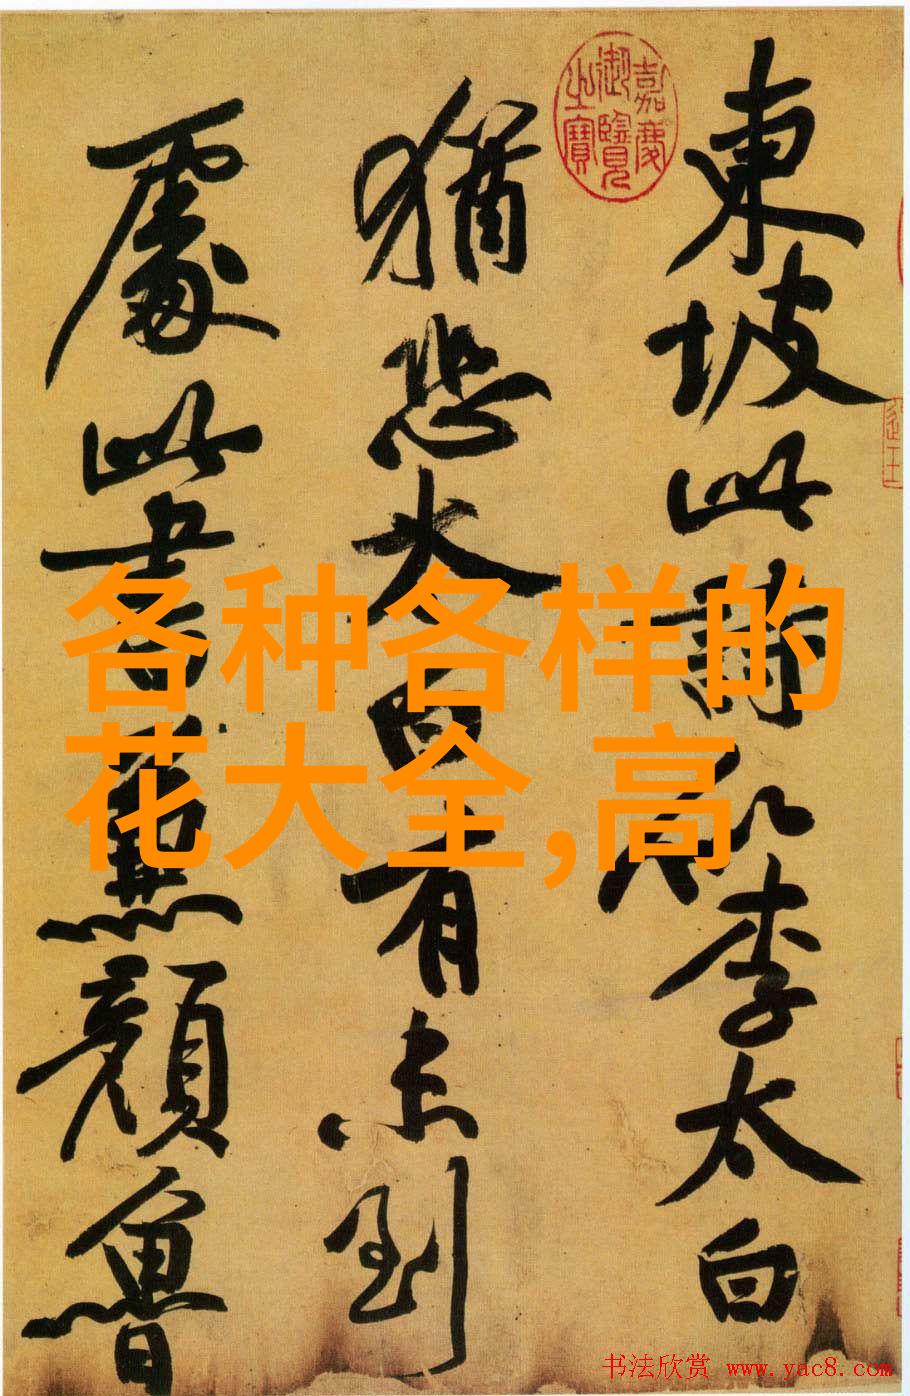 東坡此詩似李太白
猶恐太白有未到
處此書兼顏魯
嘉慶
御覽
之寶
各种各样的
花大全,高
书法欣赏 www.yac8.com